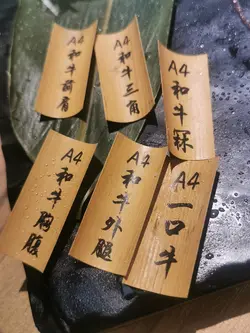 A4
和牛前肩
A4
和牛三角
A4
和牛冧
A4
和牛胸腹
A4
和牛外腿
A4
一口牛